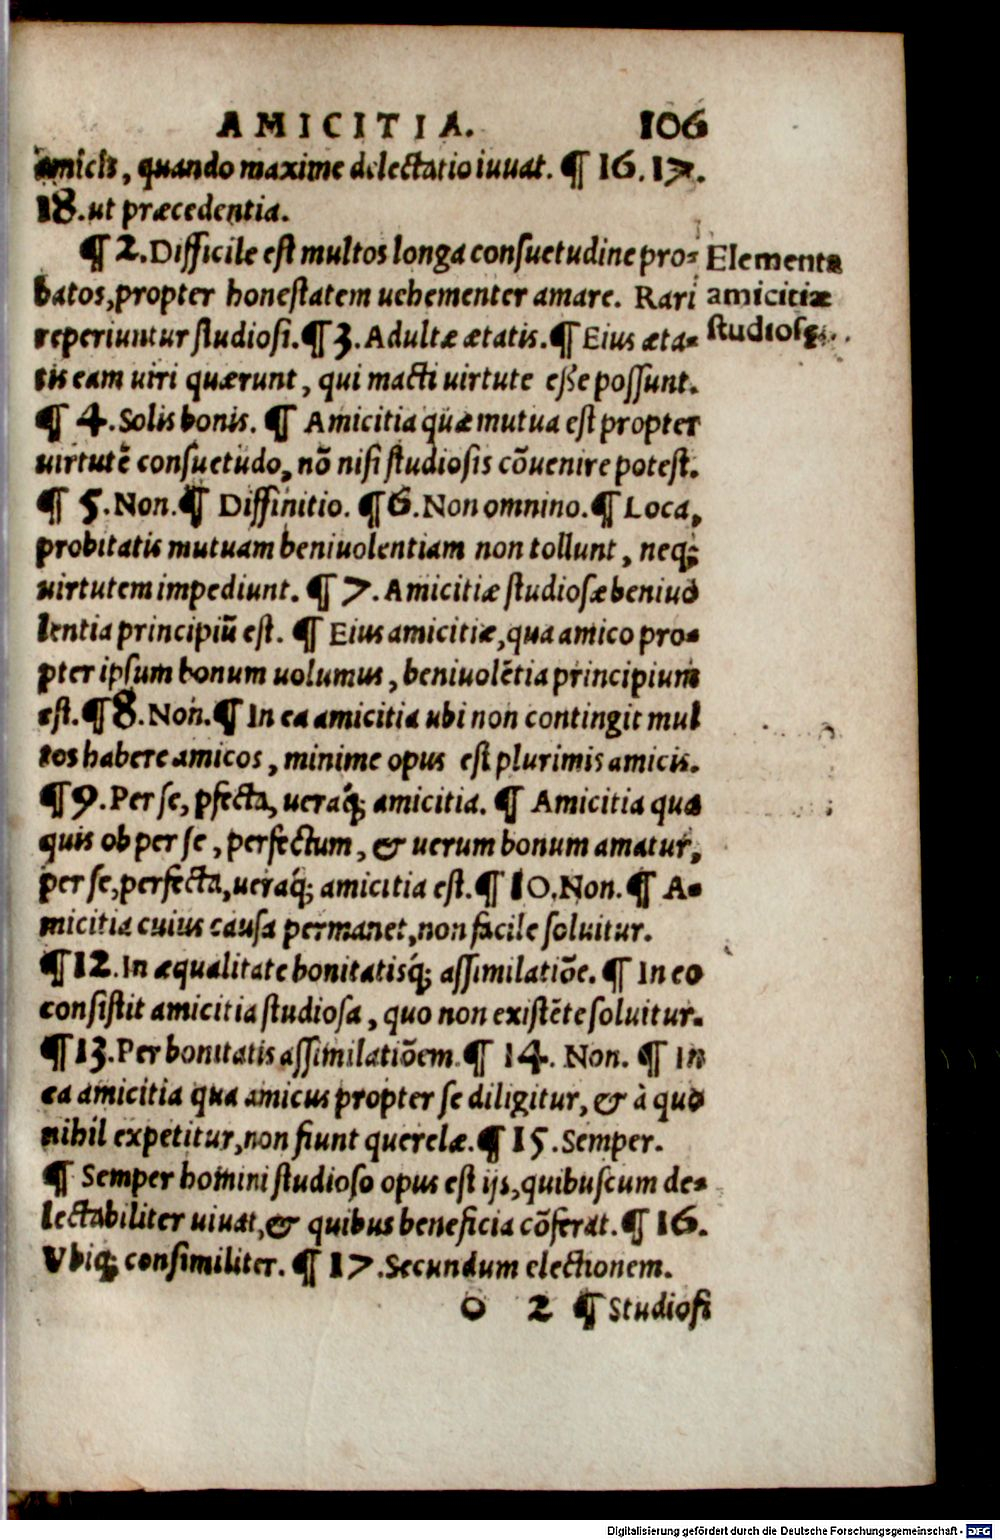 AMICITIA. 106
amicis, quando maxime delectatio iuuat. ¶ 16. 17.
18. ut præcedentia.
¶ 2. Difficile est multos longa consuetudine pro-
batos, propter honestatem uehementer amare. Rari
reperiuntur studiosi. ¶ 3. Adultæ ætatis. ¶ Eius æta-
tis eam uiri quærunt, qui macti uirtute esse possunt.
¶ 4. Solis bonis. ¶ Amicitia quæ mutua est propter
uirtutē consuetudo, nō nisi studiosis cōuenire potest.
¶ 5. Non. ¶ Diffinitio. ¶ 6. Non omnino. ¶ Loca,
probitatis mutuam beniuolentiam non tollunt, neq;
uirtutem impediunt. ¶ 7. Amicitiæ studiosæ beniuo
lentia principiū est. ¶ Eius amicitiæ, qua amico pro-
pter ipsum bonum uolumus, beniuolētia principium
est. ¶ 8. Non. ¶ In ea amicitia ubi non contingit mul
tos habere amicos, minime opus est plurimis amicis.
¶ 9. Per se, pfecta, ueraq́; amicitia. ¶ Amicitia qua
quis ob per se, perfectum, & uerum bonum amatur,
per se, perfecta, ueraq́; amicitia est. ¶ 10. Non. ¶ A-
micitia cuius causa permanet, non facile soluitur.
¶ 12. In æqualitate bonitatisq́; assimilatiōe. ¶ In eo
consistit amicitia studiosa, quo non existēte soluitur.
¶ 13. Per bonitatis assimilatiōem. ¶ 14. Non. ¶ In
ea amicitia qua amicus propter se diligitur, & à quo
nihil expetitur, non fiunt querelæ. ¶ 15. Semper.
¶ Semper homini studioso opus est ijs, quibuscum de-
lectabiliter uiuat, & quibus beneficia cōferat. ¶ 16.
Vbiq; consimiliter. ¶ 17. Secundum electionem.
O 2 ¶ Studiosi
Elementa
amicitiæ
studiosę.
Digitalisierung gefördert durch die Deutsche Forschungsgemeinschaft - DFG